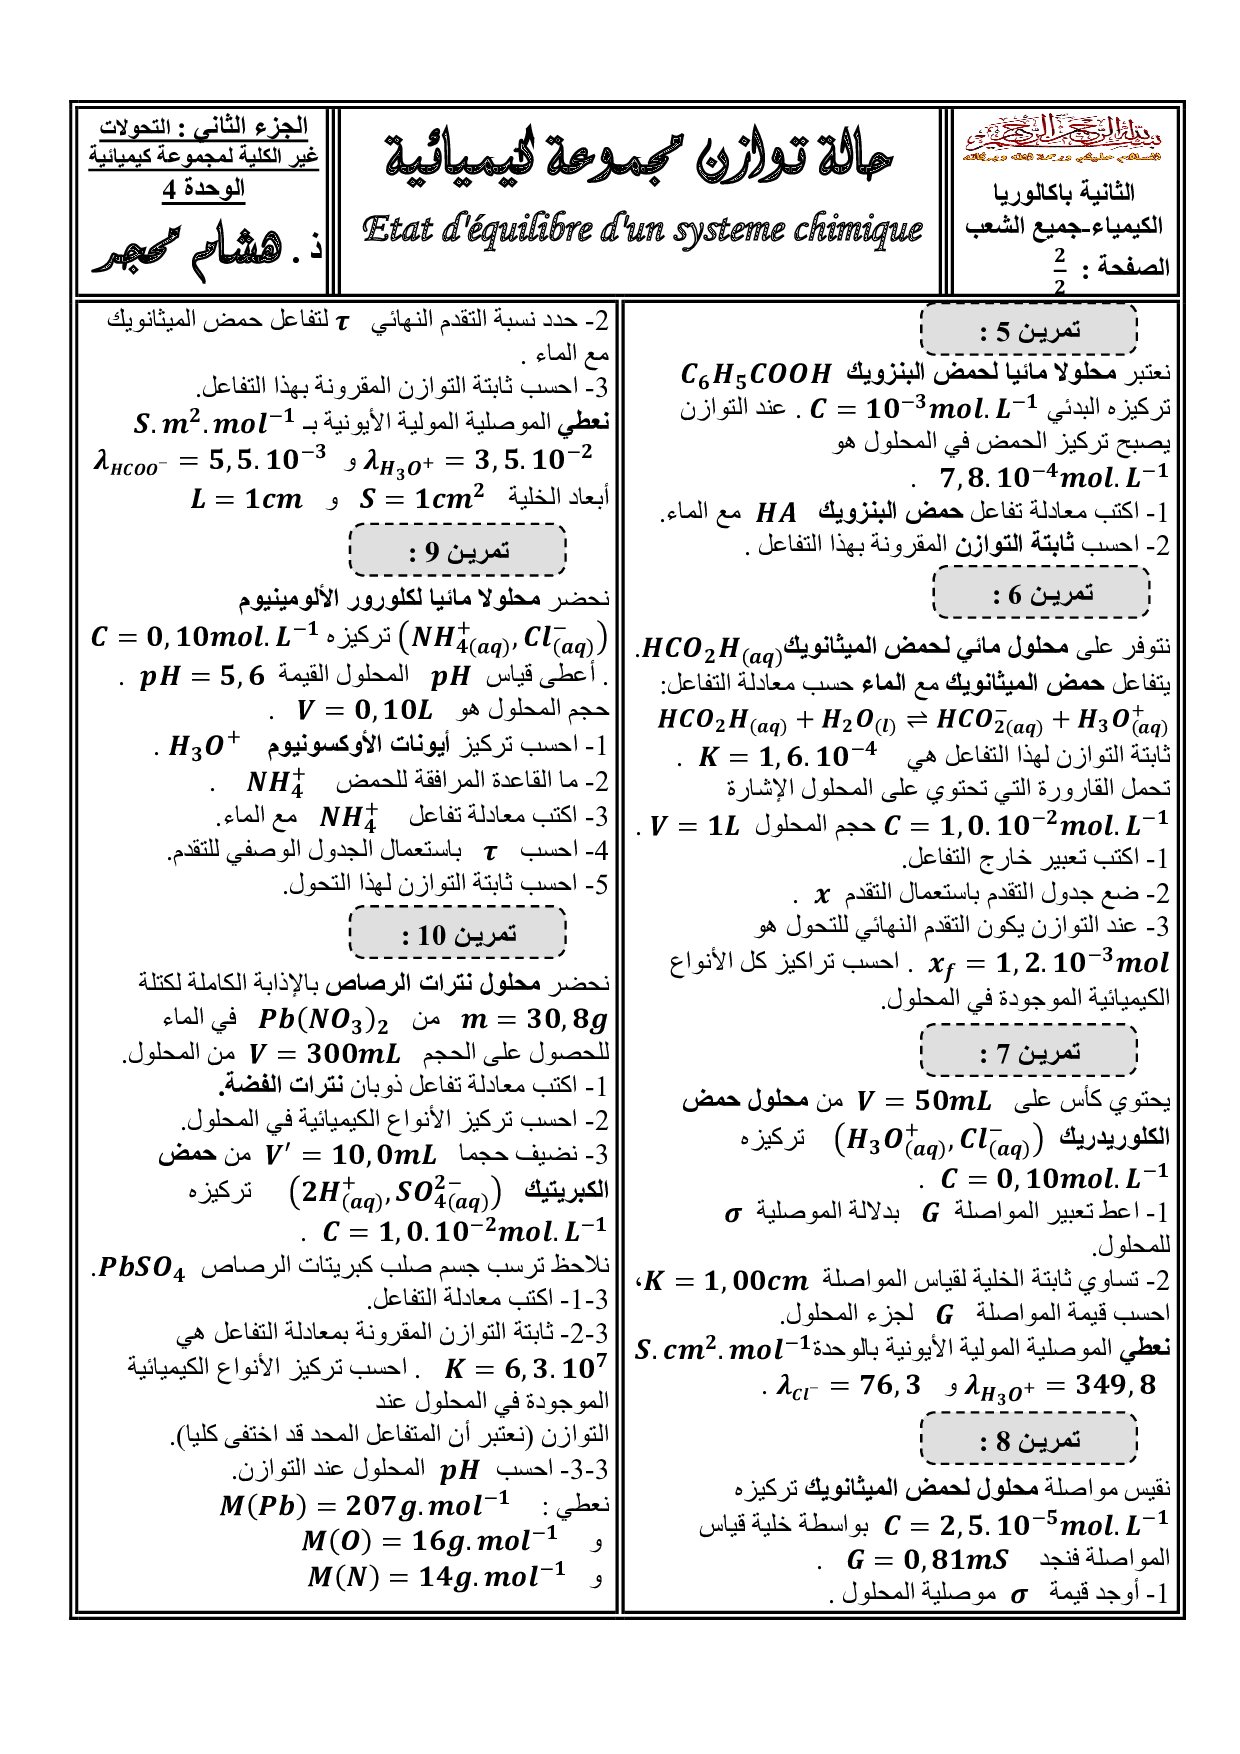 الثانية باكالوريا
الكيمياء-جميع الشعب
الصفحة : 2/2
حالة توازن مجموعة كيميائية
Etat d'équilibre d'un systeme chimique
الجزء الثاني : التحولات
غير الكلية لمجموعة كيميائية
الوحدة 4
ذ . هشام محجر
تمرين 5 :
نعتبر محلولا مائيا لحمض البنزويك C₆H₅COOH
تركيزه البدئي C = 10⁻³mol.L⁻¹ . عند التوازن
يصبح تركيز الحمض في المحلول هو
7,8.10⁻⁴mol.L⁻¹ .
1- اكتب معادلة تفاعل حمض البنزويك HA مع الماء.
2- احسب ثابتة التوازن المقرونة بهذا التفاعل .
تمرين 6 :
نتوفر على محلول مائي لحمض الميثانويك HCO₂H(aq).
يتفاعل حمض الميثانويك مع الماء حسب معادلة التفاعل:
HCO₂H(aq) + H₂O(l) ⇌ HCO₂⁻(aq) + H₃O⁺(aq)
ثابتة التوازن لهذا التفاعل هي K = 1,6.10⁻⁴ .
تحمل القارورة التي تحتوي على المحلول الإشارة
C = 1,0.10⁻²mol.L⁻¹ حجم المحلول V = 1L .
1- اكتب تعبير خارج التفاعل.
2- ضع جدول التقدم باستعمال التقدم x .
3- عند التوازن يكون التقدم النهائي للتحول هو
x_f = 1,2.10⁻³mol . احسب تراكيز كل الأنواع
الكيميائية الموجودة في المحلول.
تمرين 7 :
يحتوي كأس على V = 50mL من محلول حمض
الكلوريدريك (H₃O⁺(aq), Cl⁻(aq)) تركيزه
C = 0,10mol.L⁻¹ .
1- اعط تعبير المواصلة G بدلالة الموصلية σ
للمحلول.
2- تساوي ثابتة الخلية لقياس المواصلة K = 1,00cm،
احسب قيمة المواصلة G لجزء المحلول.
نعطي الموصلية المولية الأيونية بالوحدة S.cm².mol⁻¹
λH₃O⁺ = 349,8 و λCl⁻ = 76,3 .
تمرين 8 :
نقيس مواصلة محلول لحمض الميثانويك تركيزه
C = 2,5.10⁻⁵mol.L⁻¹ بواسطة خلية قياس
المواصلة فنجد G = 0,81mS .
1- أوجد قيمة σ موصلية المحلول .
2- حدد نسبة التقدم النهائي τ لتفاعل حمض الميثانويك
مع الماء .
3- احسب ثابتة التوازن المقرونة بهذا التفاعل.
نعطي الموصلية المولية الأيونية بـ S.m².mol⁻¹
λH₃O⁺ = 3,5.10⁻² و λHCOO⁻ = 5,5.10⁻³
أبعاد الخلية S = 1cm² و L = 1cm
تمرين 9 :
نحضر محلولا مائيا لكلورور الألومينيوم
(NH₄⁺(aq), Cl⁻(aq)) تركيزه C = 0,10mol.L⁻¹
. أعطى قياس pH المحلول القيمة pH = 5,6 .
حجم المحلول هو V = 0,10L .
1- احسب تركيز أيونات الأوكسونيوم H₃O⁺ .
2- ما القاعدة المرافقة للحمض NH₄⁺ .
3- اكتب معادلة تفاعل NH₄⁺ مع الماء.
4- احسب τ باستعمال الجدول الوصفي للتقدم.
5- احسب ثابتة التوازن لهذا التحول.
تمرين 10 :
نحضر محلول نترات الرصاص بالإذابة الكاملة لكتلة
m = 30,8g من Pb(NO₃)₂ في الماء
للحصول على الحجم V = 300mL من المحلول.
1- اكتب معادلة تفاعل ذوبان نترات الفضة.
2- احسب تركيز الأنواع الكيميائية في المحلول.
3- نضيف حجما V′ = 10,0mL من حمض
الكبريتيك (2H⁺(aq), SO₄²⁻(aq)) تركيزه
C = 1,0.10⁻²mol.L⁻¹ .
نلاحظ ترسب جسم صلب كبريتات الرصاص PbSO₄.
3-1- اكتب معادلة التفاعل.
3-2- ثابتة التوازن المقرونة بمعادلة التفاعل هي
K = 6,3.10⁷ . احسب تركيز الأنواع الكيميائية
الموجودة في المحلول عند
التوازن (نعتبر أن المتفاعل المحد قد اختفى كليا).
3-3- احسب pH المحلول عند التوازن.
نعطي : M(Pb) = 207g.mol⁻¹
و M(O) = 16g.mol⁻¹
و M(N) = 14g.mol⁻¹